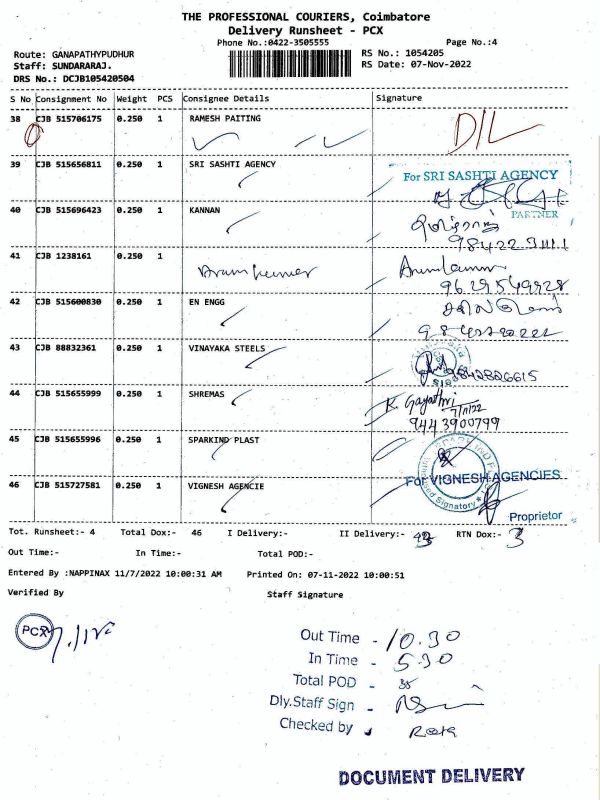 THE PROFESSIONAL COURIERS, Coimbatore
Delivery Runsheet - PCX
Phone No.:0422-3505555 Page No.:4
Route: GANAPATHYPUDHUR RS No.: 1054205
Staff: SUNDARARAJ. RS Date: 07-Nov-2022
DRS No.: DCJB105420504
S No Consignment No Weight PCS Consignee Details Signature
38 CJB 515706175 0.250 1 RAMESH PAITING D/L
39 CJB 515656811 0.250 1 SRI SASHTI AGENCY For SRI SASHTI AGENCY
PARTNER
40 CJB 515696423 0.250 1 KANNAN
41 CJB 1238161 0.250 1 Arunkumar
9629549928
42 CJB 515600830 0.250 1 EN ENGG
43 CJB 88832361 0.250 1 VINAYAKA STEELS 9842826615
44 CJB 515655999 0.250 1 SHREMAS K. Gayathri
7/11/22
9443900799
45 CJB 515655996 0.250 1 SPARKIND PLAST
46 CJB 515727581 0.250 1 VIGNESH AGENCIE For VIGNESH AGENCIES
Proprietor
Tot. Runsheet:- 4 Total Dox:- 46 I Delivery:- II Delivery:- 43 RTN Dox:- 3
Out Time:- In Time:- Total POD:-
Entered By :NAPPINAX 11/7/2022 10:00:31 AM Printed On: 07-11-2022 10:00:51
Verified By Staff Signature
PCX
Out Time - 10.30
In Time - 5.30
Total POD -
Dly.Staff Sign -
Checked by
DOCUMENT DELIVERY